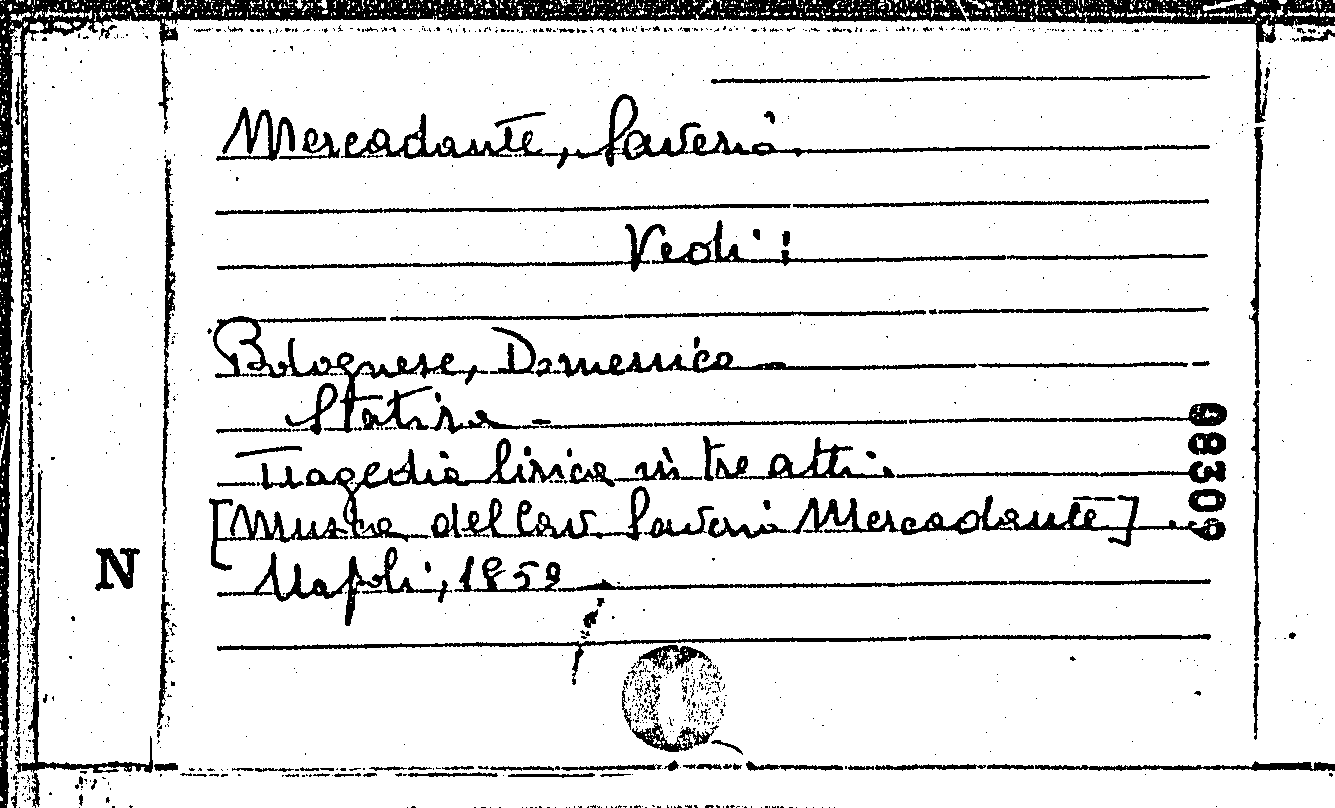 Mercadante, Saverio.
Vedi:
Bolognese, Domenico -
Statira -
Tragedia lirica in tre atti.
[Musica del Cav. Saverio Mercadante] .
Napoli, 1859
98309
N